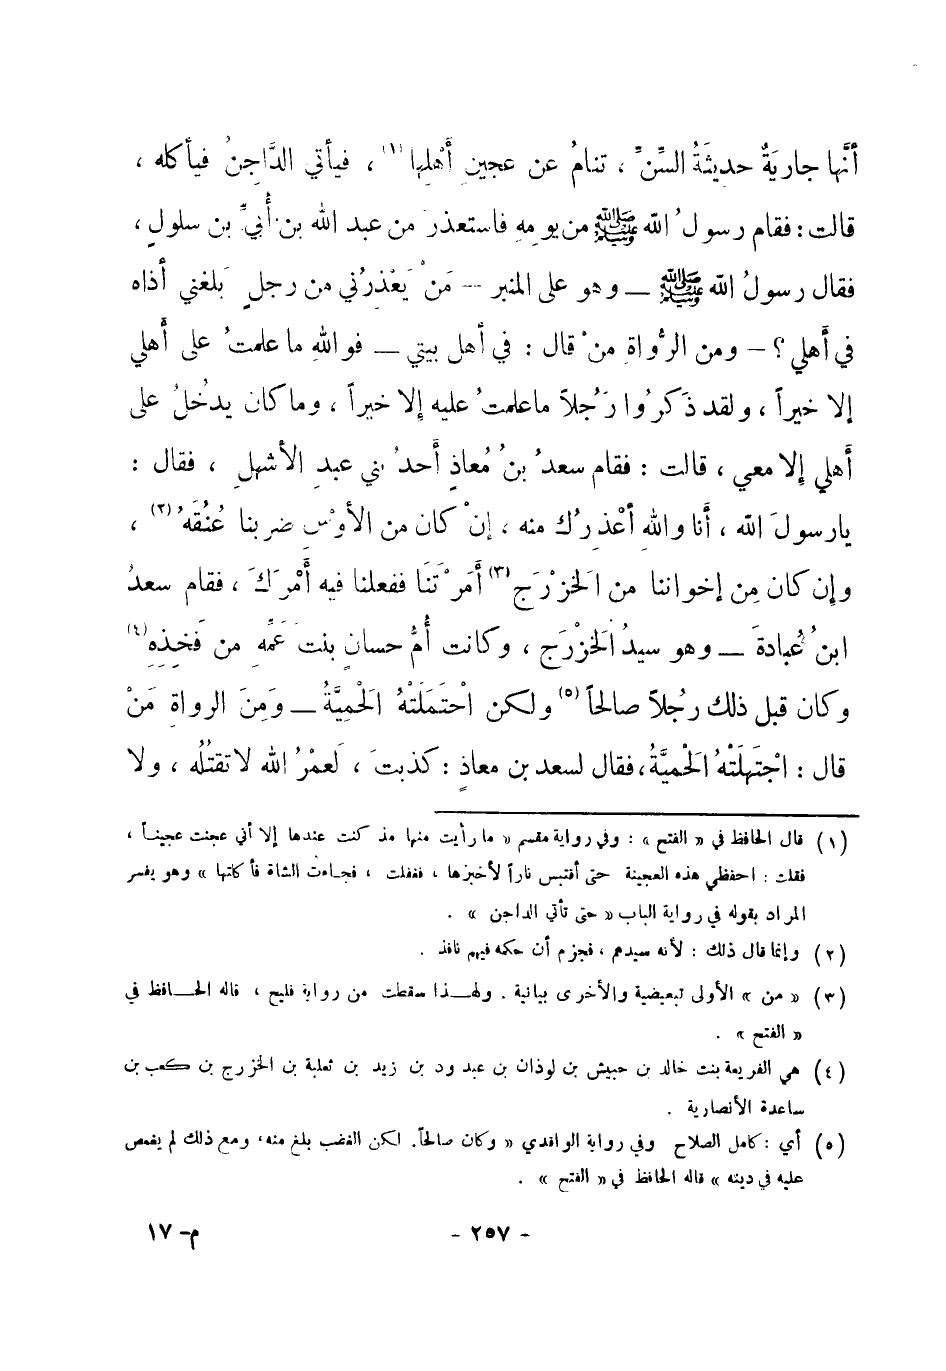 أنَّها جاريَةٌ حديثَةُ السِّنِّ ، تنامُ عن عجينِ أَهْلِها (١) ، فيأتي الدَّاجنُ فيأكله ،
قالت : فقام رسولُ الله ﷺ من يومِهِ فاستعذرَ من عبد الله بن أُبيِّ بن سلولٍ ،
فقال رسولُ الله ﷺ ــ وهو على المنبر ــ مَنْ يَعْذِرُني من رجلٍ بَلغني أذاه
في أهلي ؟ ــ ومن الرُّواةِ منْ قال : في أهل بيتي ــ فواللهِ ما علمتُ على أهلي
إلا خيراً ، ولقد ذَكرُوا رَجُلاً ماعلمتُ عليه إلا خيراً ، وما كان يدخُلُ على
أهلي إلا معي ، قالت : فقام سعدُ بنُ مُعاذٍ أحدُ بني عبدِ الأشهلِ ، فقال :
يارسولَ الله ، أنا واللهِ أعْذِرُكَ منه ، إنْ كان من الأوْسِ ضربنا عُنُقَهُ (٢) ،
وإن كان مِن إخواننا من الَخزْرَجِ (٣) أمَرْتَنَا ففعلنا فيه أَمْرَكَ ، فقام سعدُ
ابنُ عُبادةَ ــ وهو سيدُ الَخزْرَجِ ، وكانت أُمُّ حسانٍ بنتَ عَمِّهِ من فَخِذِهِ (٤)
وكان قبل ذلك رجُلاً صالحاً (٥) ولكن احْتَمَلَتْهُ الَحْمِيَّةُ ــ وَمِنَ الرواةِ مَنْ
قال : اجْتَهَلَتْهُ الَحْمِيَّةُ ، فقال لسعد بن معاذٍ : كذبتَ ، لَعمْرُ الله لاتقتُلُه ، ولا
(١) قال الحافظ في « الفتح » : وفي رواية مقسم « ما رأيت منها مذ كنت عندها إلا أني عجنت عجيناً ،
فقلت : احفظي هذه العجينة حتى أقتبس ناراً لأخبزها ، فغفلت ، فجاءت الشاة فأكلتها » وهو يفسر
المراد بقوله في رواية الباب « حتى تأتي الداجن » .
(٢) وإنما قال ذلك : لأنه سيدهم ، فجزم أن حكمه فيهم نافذ .
(٣) « من » الأولى تبعيضية والأخرى بيانية . ولهـذا سقطت من رواية فليح ، قاله الحـافظ في
« الفتح » .
(٤) هي الفريعة بنت خالد بن حبيش بن لوذان بن عبد ود بن زيد بن ثعلبة بن الخزرج بن كعب بن
ساعدة الأنصارية .
(٥) أي : كامل الصلاح وفي رواية الواقدي « وكان صالحاً. لكن الغضب بلغ منه، ومع ذلك لم يغمص
عليه في دينه » قاله الحافظ في « الفتح » .
- ٢٥٧ -
م- ١٧